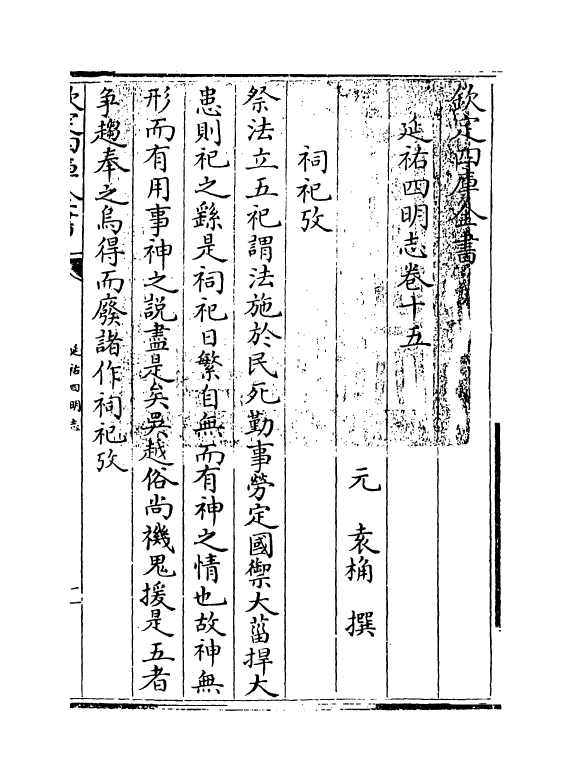 欽定四庫全書
延祐四明志卷十五
元 袁桷 撰
祠祀攷
祭法立五祀謂法施於民死勤事勞定國禦大菑捍大
患則祀之繇是祠祀日繁自無而有神之情也故神無
形而有用事神之説盡是矣吳越俗尚禨鬼援是五者
爭趨奉之烏得而廢諸作祠祀攷
延祐四明志